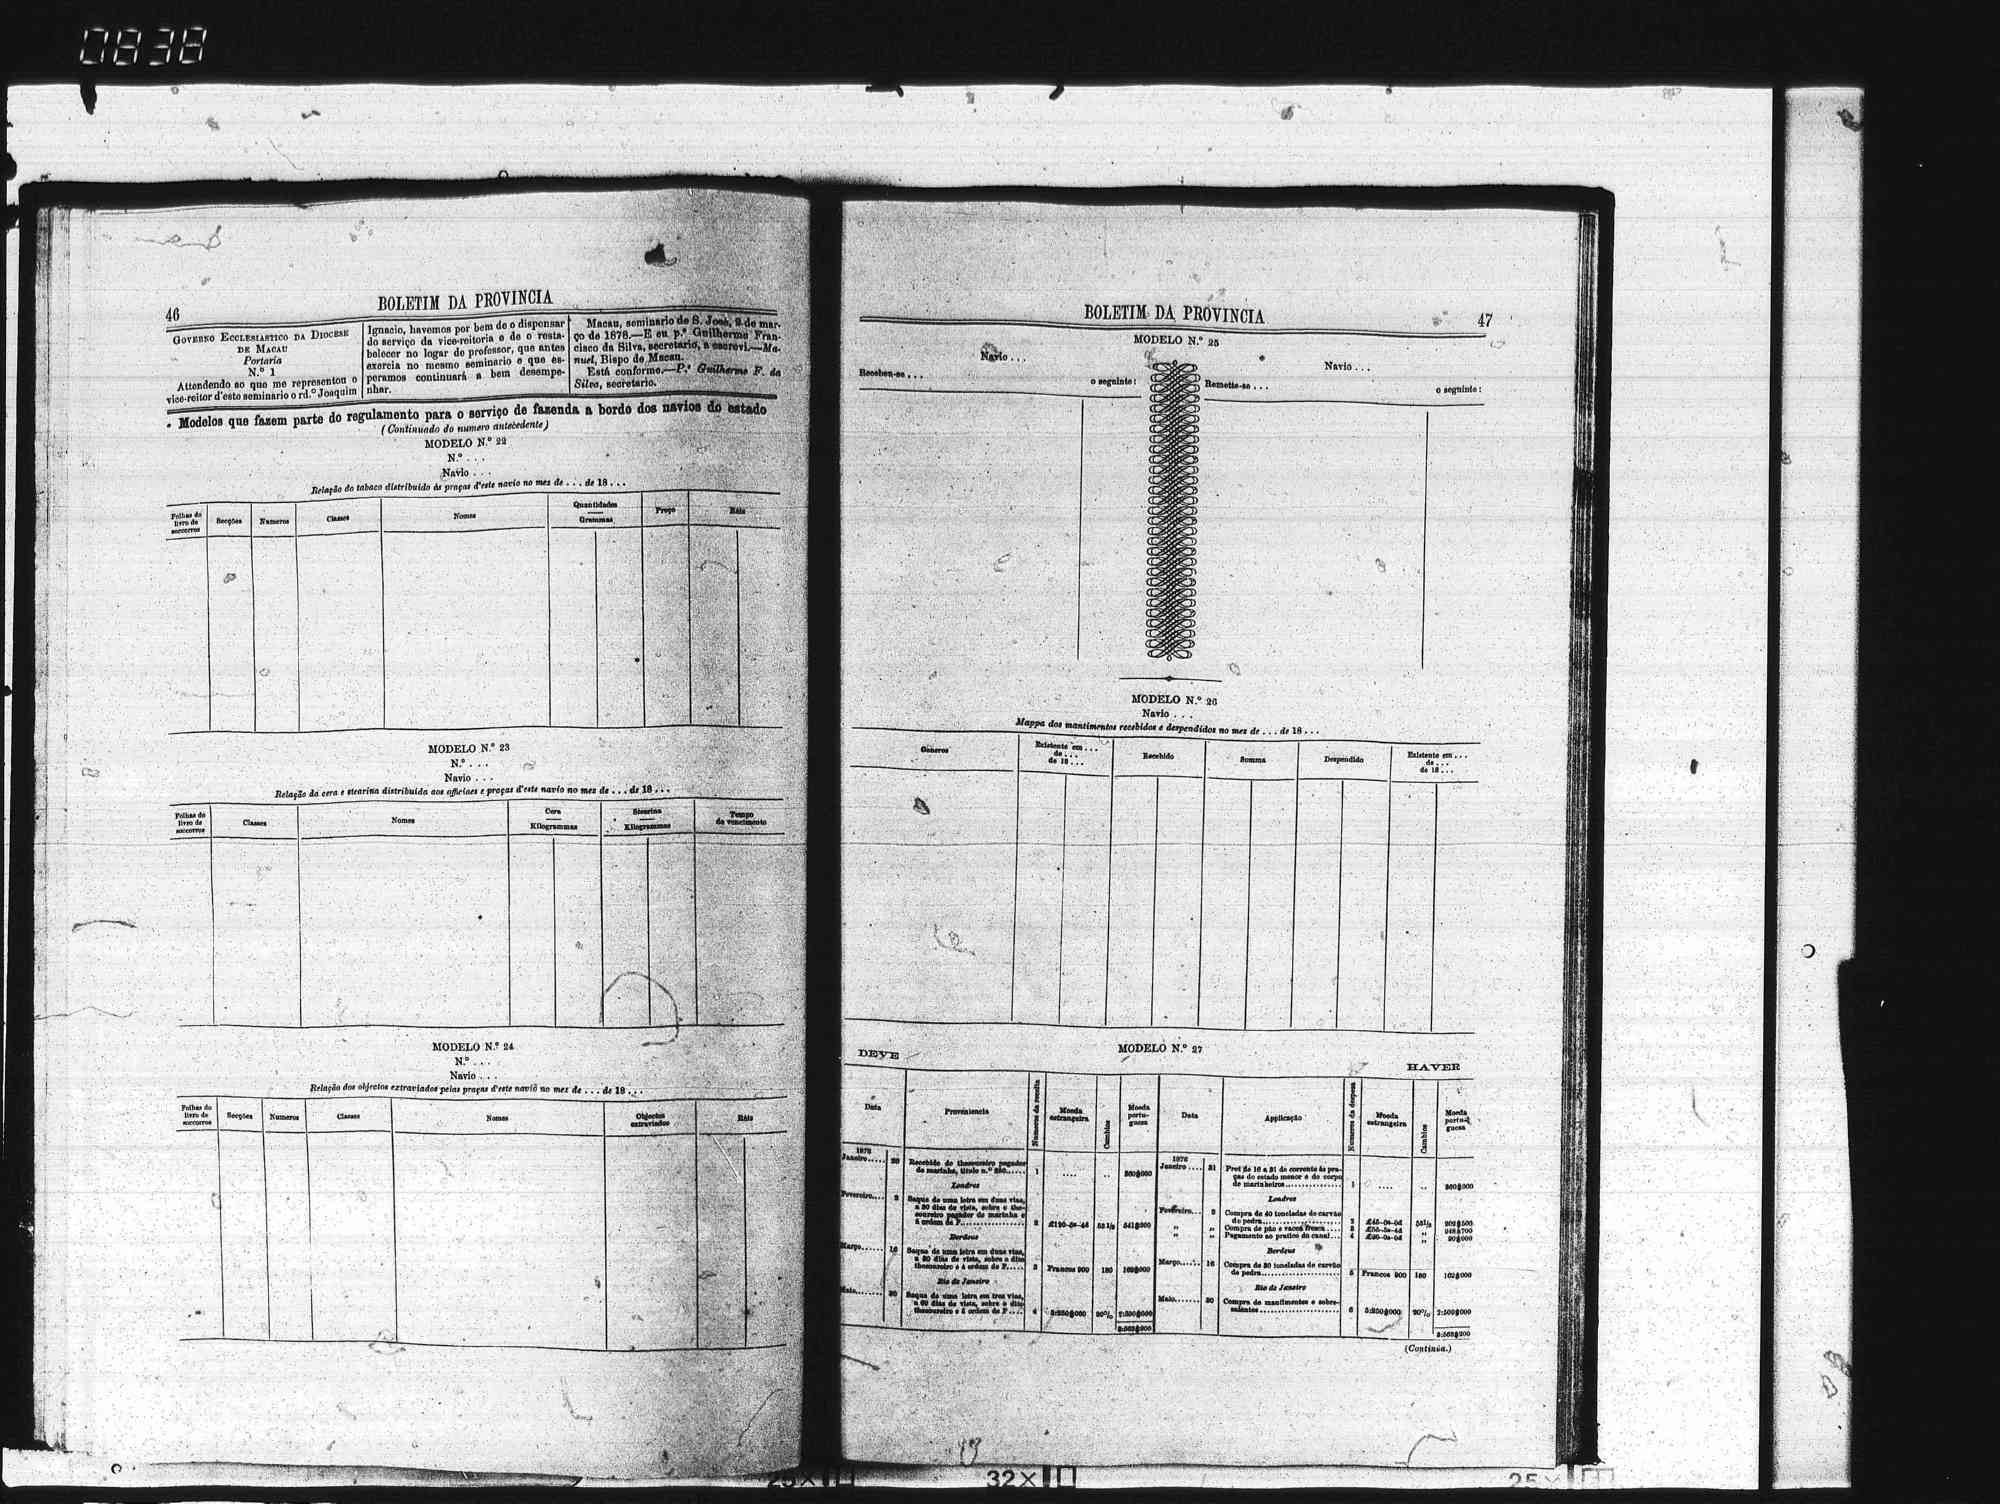 0838
46
BOLETIM DA PROVINCIA
GOVERNO ECCLESIASTICO DA DIOCESE
DE MACAU
Portaria
N.º 1
Attendendo ao que me representou o
vice-reitor d'este seminario o rd.º Joaquim
Ignacio, havemos por bem de o dispensar
do serviço da vice-reitoria e de o resta-
belecer no logar de professor, que antes
exercia no mesmo seminario e que es-
peramos continuará a bem desempe-
nhar.
Macau, seminario de S. José, 2 de mar-
ço de 1878.—E eu p.e Guilherme Fran-
cisco da Silva, secretario, a escrevi.—Ma-
nuel, Bispo de Macau.
Está conforme.—P.e Guilherme F. da
Silva, secretario.
Modelos que fazem parte do regulamento para o serviço de fazenda a bordo dos navios do estado
(Continuado do numero antecedente)
MODELO N.º 22
N.º . . .
Navio . . .
Relação do tabaco distribuido ás praças d'este navio no mez de . . . de 18 . . .
Folhas do
livro de
soccorros
Secções
Numeros
Classes
Nomes
Quantidades
Grammas
Preço
Réis
MODELO N.º 23
N.º . . .
Navio . . .
Relação da cera e stearina distribuida aos officiaes e praças d'este navio no mez de . . . de 18 . . .
Folhas do
livro de
soccorros
Classes
Nomes
Cera
Kilogrammas
Stearina
Kilogrammas
Tempo
de vencimento
MODELO N.º 24
N.º . . .
Navio . . .
Relação dos objectos extraviados pelas praças d'este navio no mez de . . . de 18 . . .
Folhas do
livro de
soccorros
Secções
Numeros
Classes
Nomes
Objectos
extraviados
Réis
BOLETIM DA PROVINCIA
47
MODELO N.º 25
Navio . . .
Recebeu-se . . .
o seguinte:
Navio . . .
Remette-se . . .
o seguinte:
MODELO N.º 26
Navio . . .
Mappa dos mantimentos recebidos e despendidos no mez de . . . de 18 . . .
Generos
Existente em . . .
de . . .
de 18 . . .
Recebido
Somma
Despendido
Existente em . . .
de . . .
de 18 . . .
MODELO N.º 27
DEVE
HAVER
Data
Proveniencia
Numeros da receita
Moeda
estrangeira
Cambios
Moeda
portu-
gueza
Data
Applicação
Numeros da despeza
Moeda
estrangeira
Cambios
Moeda
portu-
gueza
Janeiro.....
Recebido do thesoureiro pagador
de marinha, titulo n.º
1
....
..
360$000
Londres
Fevereiro....
Saque de uma letra em duas vias,
a 30 dias de vista, sobre o the-
soureiro pagador de marinha e
á ordem de P...
2
541$200
Bordeus
Março......
16
Saque de uma letra em duas vias,
a 30 dias de vista, sobre o dito
thesoureiro e á ordem de P.....
3
Francos 900
180
162$000
Rio de Janeiro
Maio.......
Saque de uma letra em tres vias,
a 60 dias de vista, sobre o dito
thesoureiro e á ordem de P....
4
Janeiro ....
31
Pret de 16 a 31 do corrente ás pra-
ças do estado menor e do corpo
de marinheiros...............
1
....
..
360$000
Londres
Fevereiro...
Compra de 40 toneladas de carvão
de pedra...................
2
202$500
„
„
Compra de pão e vacca fresca....
3
248$700
„
„
Pagamento ao pratico do canal...
4
„
90$000
Bordeus
Março......
16
Compra de 30 toneladas de carvão
de pedra....................
5
Francos 900
180
162$000
Rio de Janeiro
Maio.......
30
Compra de mantimentos e sobre-
salentes....................
6
(Continúa.)
25X
32X
25X